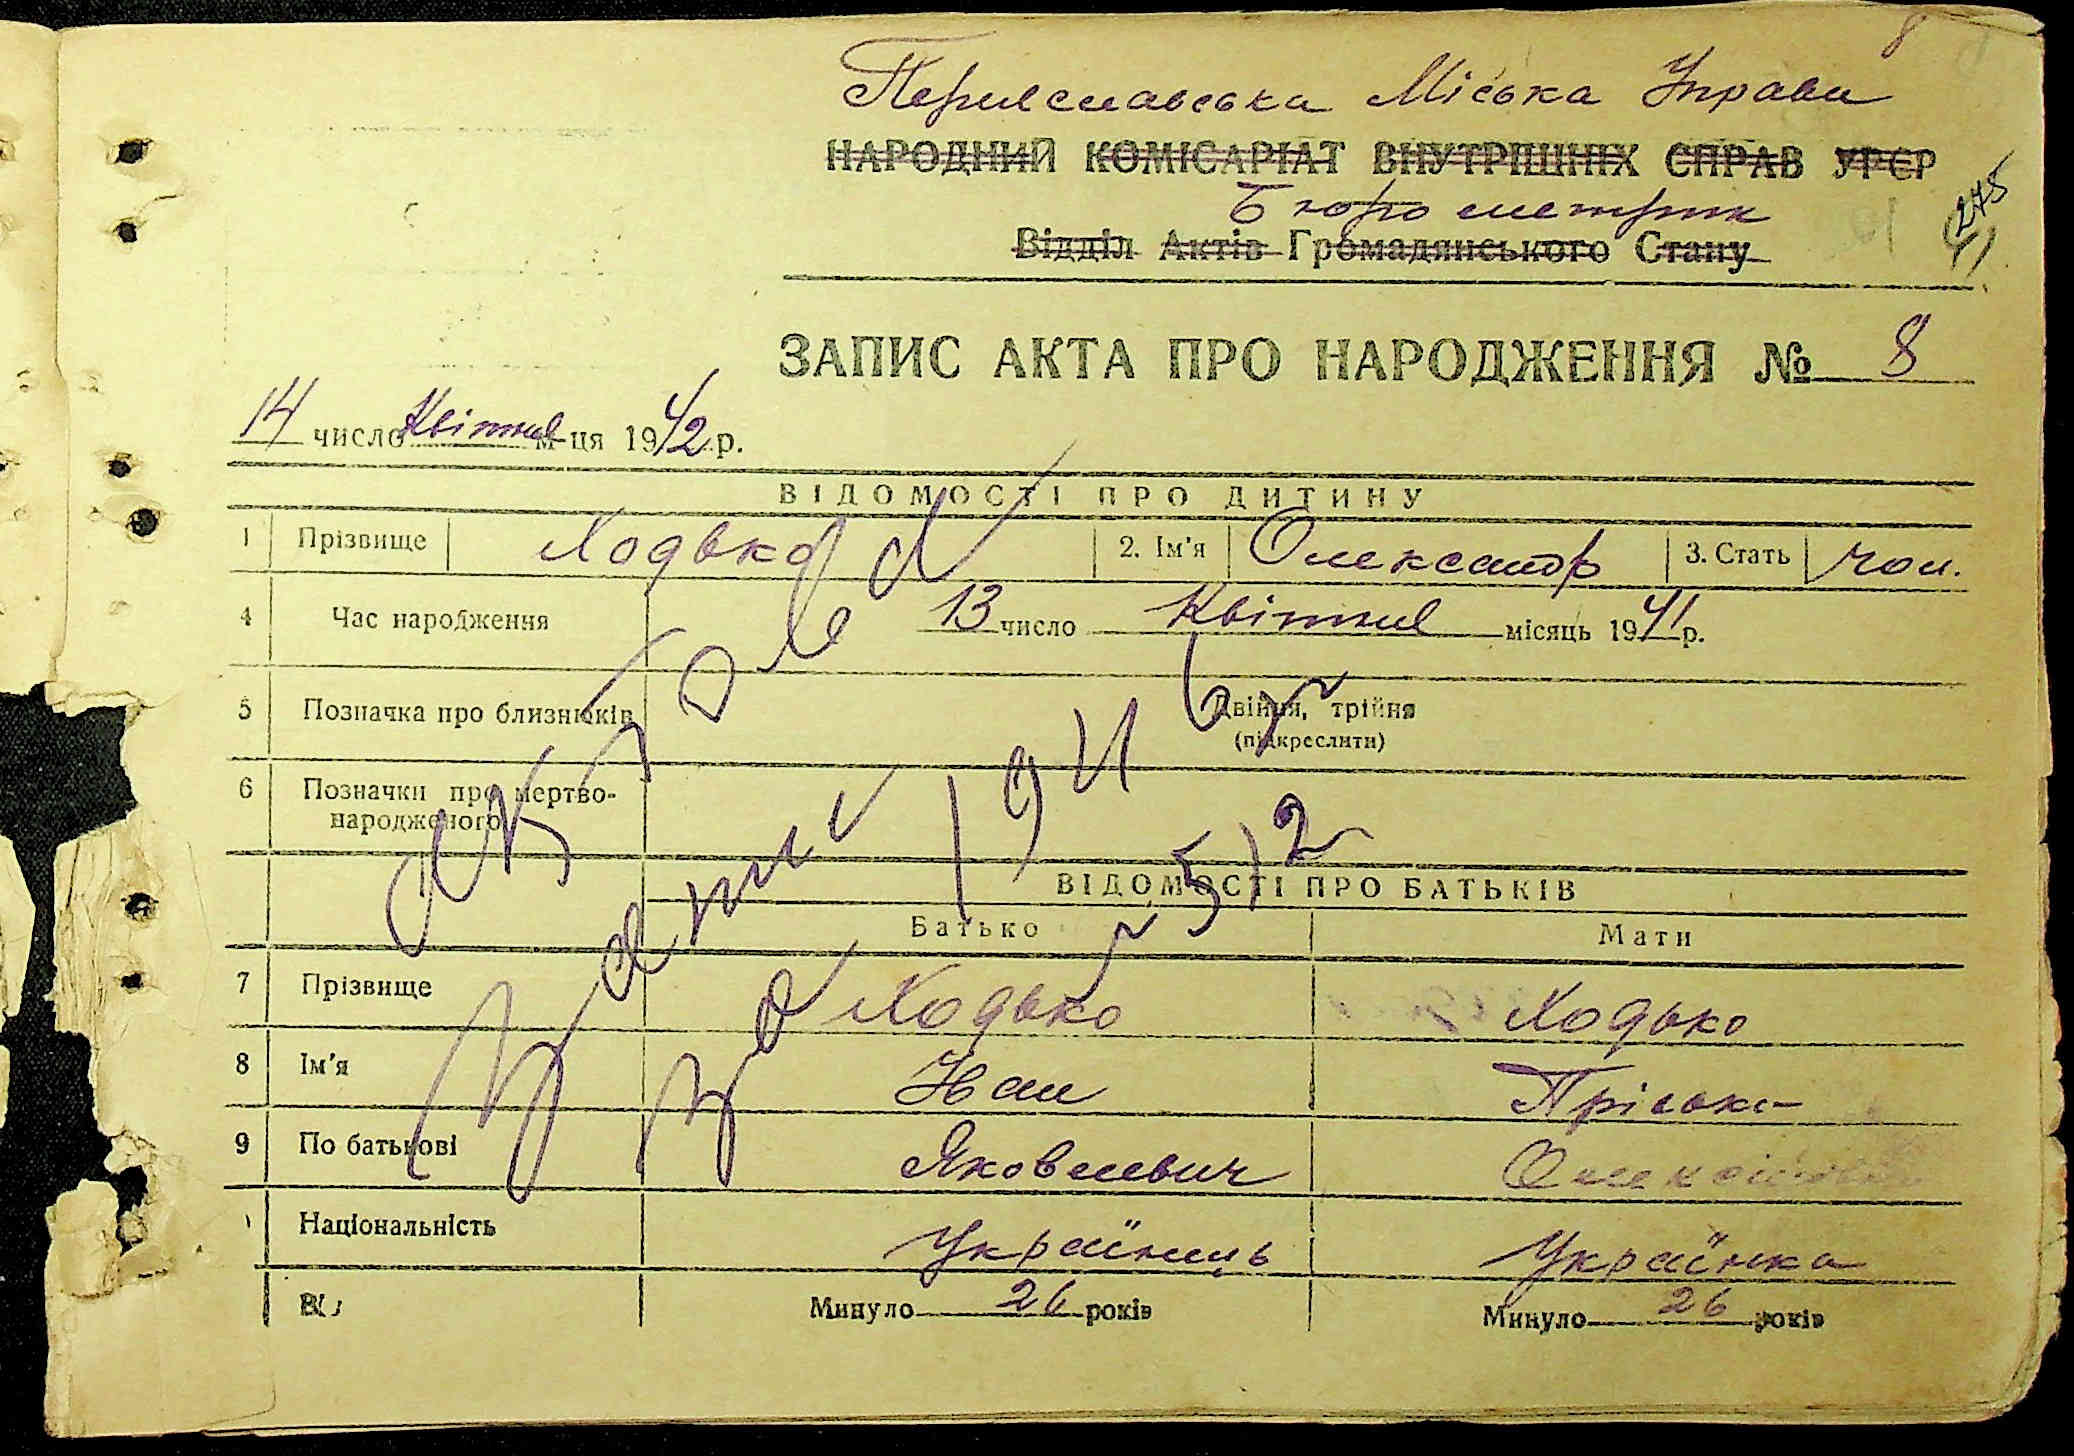 8
Переяславська Міська Управа
НАРОДНИЙ КОМІСАРІАТ ВНУТРІШНІХ СПРАВ УРСР
Бюро метрик
275
Відділ Актів Громадянського Стану
ЗАПИС АКТА ПРО НАРОДЖЕННЯ № 8
14 число Квітня м-ця 1942 р.
ВІДОМОСТІ ПРО ДИТИНУ
1 Прізвище Ходько 2. Ім'я Олександр 3. Стать чол.
4 Час народження 13 число Квітня місяць 1941 р.
5 Позначка про близнюків Двійня, трійня
(підкреслити)
6 Позначки про мертво-
народженого
ВІДОМОСТІ ПРО БАТЬКІВ
Батько Мати
7 Прізвище Ходько Ходько
8 Ім'я Іван Пріська
9 По батькові Яковлевич
Національність Українець Українка
Минуло 26 років Минуло 26 років